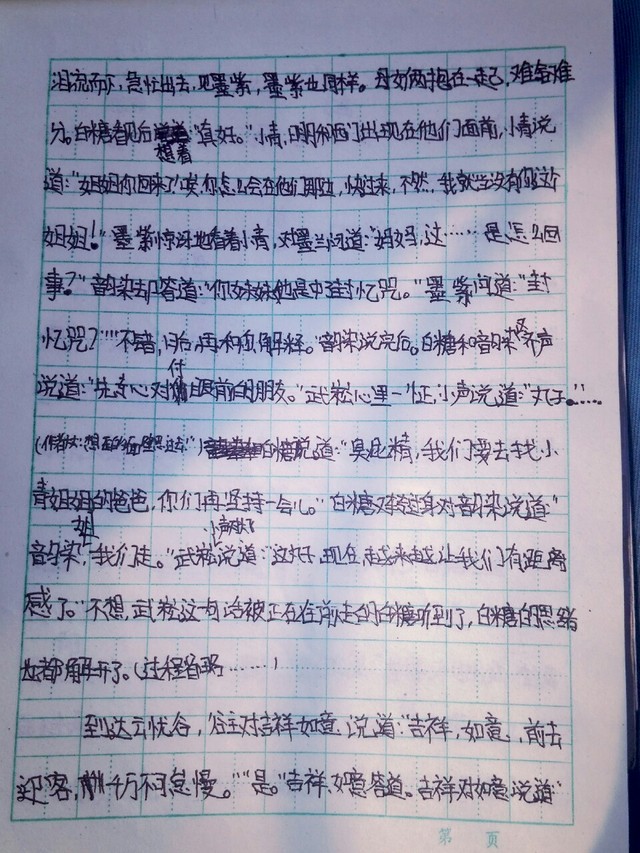 泪流而下,急忙出去,见墨紫,墨紫也同样。母女俩抱在一起,难舍难
分。白糖看见后想着:"真好。"小青,明月和西门出现在他们面前,小青说
道:"姐姐你回来了!唉,你怎么会在他们那边,快过来,不然,我就当没有你这个
姐姐!"墨紫惊讶地看着小青,对墨兰问道:"妈妈,这……是怎么回
事?"韵染却答道:"你妹妹他是中封忆咒。"墨紫问道:"封
忆咒?""不错,以后,再和你解释。"韵染说完后。白糖和韵染齐声
说道:"先专心对付眼前的朋友。"武崧心里一怔,小声说道:"丸子。"……
白糖说道:"臭屁精,我们要去找小
青姐姐的爸爸,你们再坚持一会儿。"白糖转身对韵染说道:"
韵染姐,我们走。"武崧小声说道:"这丸子,现在,越来越让我们有距离
感了。"不想,武崧这一句话被正在往前走的白糖听到了,白糖的思绪
也都解开了。(过程省略……)
到达云忧谷,谷主对吉祥如意说道:"吉祥,如意,前去
迎客,千万不可怠慢。""是。"吉祥、如意答道。吉祥对如意说道:"
第 页